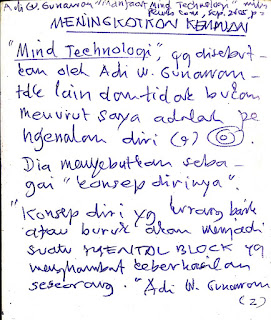 Adi W. Gunawan "Manfaat Mind Technology"
MENINGKATKAN
"Mind Technologi", yg disebut-
kan oleh Adi W. Gunawan -
tdk lain dan tidak bukan
menurut saya adalah pe
ngenalan diri (9)
Dia menyebutkan seba-
gai "konsep dirinya".
"Konsep diri yg kurang baik
atau buruk akan menjadi
suatu MENTAL BLOCK yg
menghambat keberhasilan
seseorang." Adi W. Gunawan
(2)